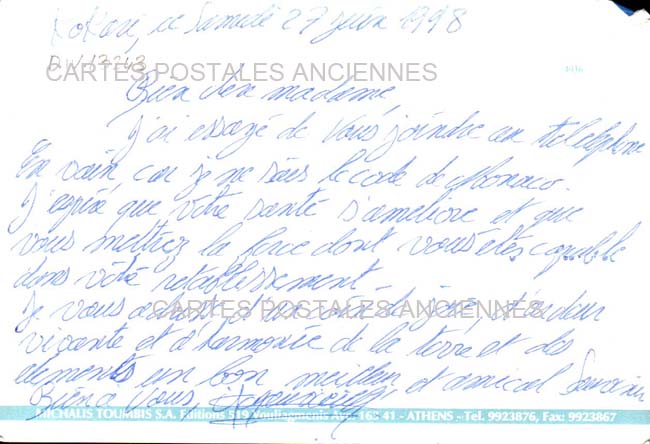 Kokari, ce Samedi 27 juin 1998
CARTES POSTALES ANCIENNES
4036
Bien chère madame,
J'ai essayé de vous joindre au téléphone
En vain car je ne sais le code de Monaco.
J'espère que votre santé s'améliore et que
vous mettrez la force dont vous êtes capable
dans votre rétablissement -
CARTES POSTALES ANCIENNES
Je vous
et d'harmonie de la terre et des
éléments un bon meilleur et amical Souvenir
Bien à vous,
MICHALIS TOUMBIS S.A. Editions 519 Vouliagmenis Ave. 163 41 - ATHENS - Tel. 9923876, Fax: 9923867